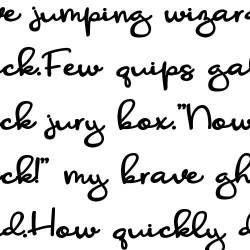 ve jumping wizard
ck.Few quips gal
ck jury box."Now
ck!" my brave gh
d.How quickly d